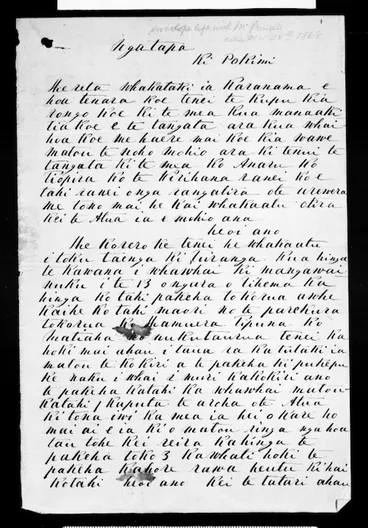 Ngatapa
Ki Pokimi
He reta whakatuki ia Karanama e
hoa tenara koe tenei te Kupu Kia
rongo Koe Ki te mea Kua manaaki
tia Koe e te tangata ara Kua whai
hoa Koe me haere mai Koe Kia wawe
matou te noho mohio ara Ki tenei te
tangata Ki te mea Ko Anaru Ko
Tiopira Ko te Kerihana ranei Ko e
tahi ranei o nga rangatira o te urewera
me tono mai he Kai whakaatu otira
Kei te Atua ia e mohio ana
heoi ano
He Korero Ke tenei he whakaatu
i toku taenga Ki Turanga Kua hinga
te Kawana i whawhai Ki mangawai
nuku i te 13 o nga ra o tihema Ka
hinga Ko tahi pakeha tokorua awhe
Kaihe Ko tahi maori no te parehura
tokorua Ko Hamuera tipuna Ko
Matiaha no nukutaurua tenei Ka
hoki mai ahau i taua ra Ka tutaki ia
matou te Kokiri a te pakeha Ki puhepu
Ke naku i whai i muri Kakokiri ano
te pakeha Katahi Ka whawhai matou
Katahi Kaputa te aroha o te Atua
Ki tona iwi Ka mea ia hei o kare ho
mai ai e ia Ki o matou ringa nga hoa
tau tohe Kei reira Kahinga te
pakeha toko 3 Kawhati hoki te
pakeha Kahore rawa hentu Ki hai
Kotahi heoi ano Kei te tatari ahau